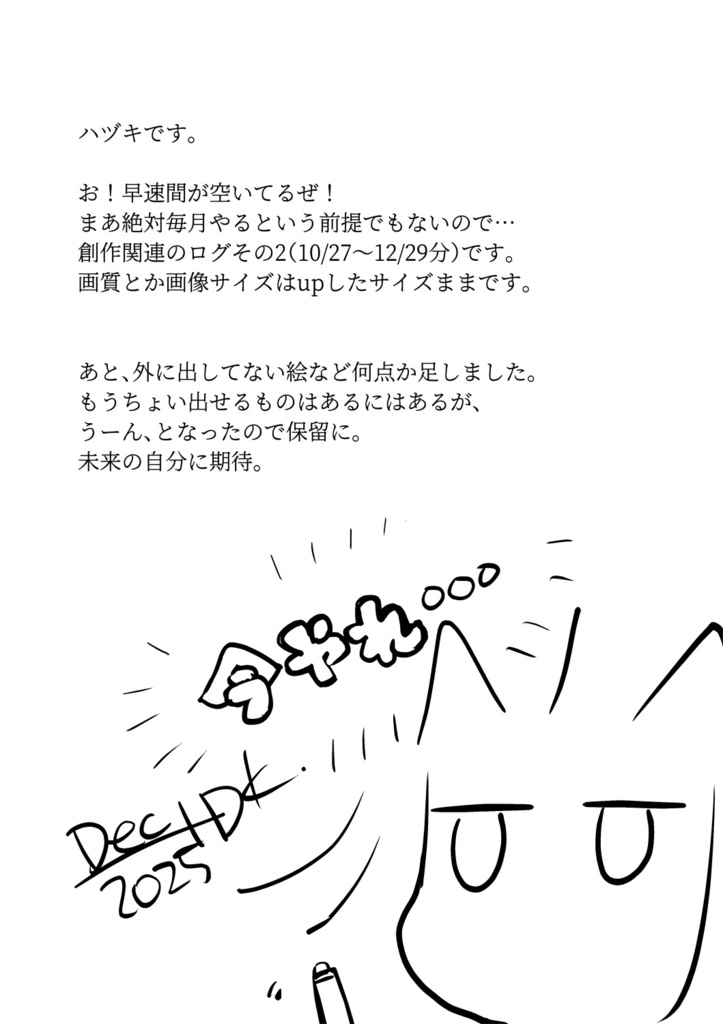 ハヅキです。
お！早速間が空いてるぜ！
まあ絶対毎月やるという前提でもないので…
創作関連のログその2（10/27〜12/29分）です。
画質とか画像サイズはupしたサイズままです。
あと、外に出してない絵など何点か足しました。
もうちょい出せるものはあるにはあるが、
うーん、となったので保留に。
未来の自分に期待。
今やれ…
Dec
2025